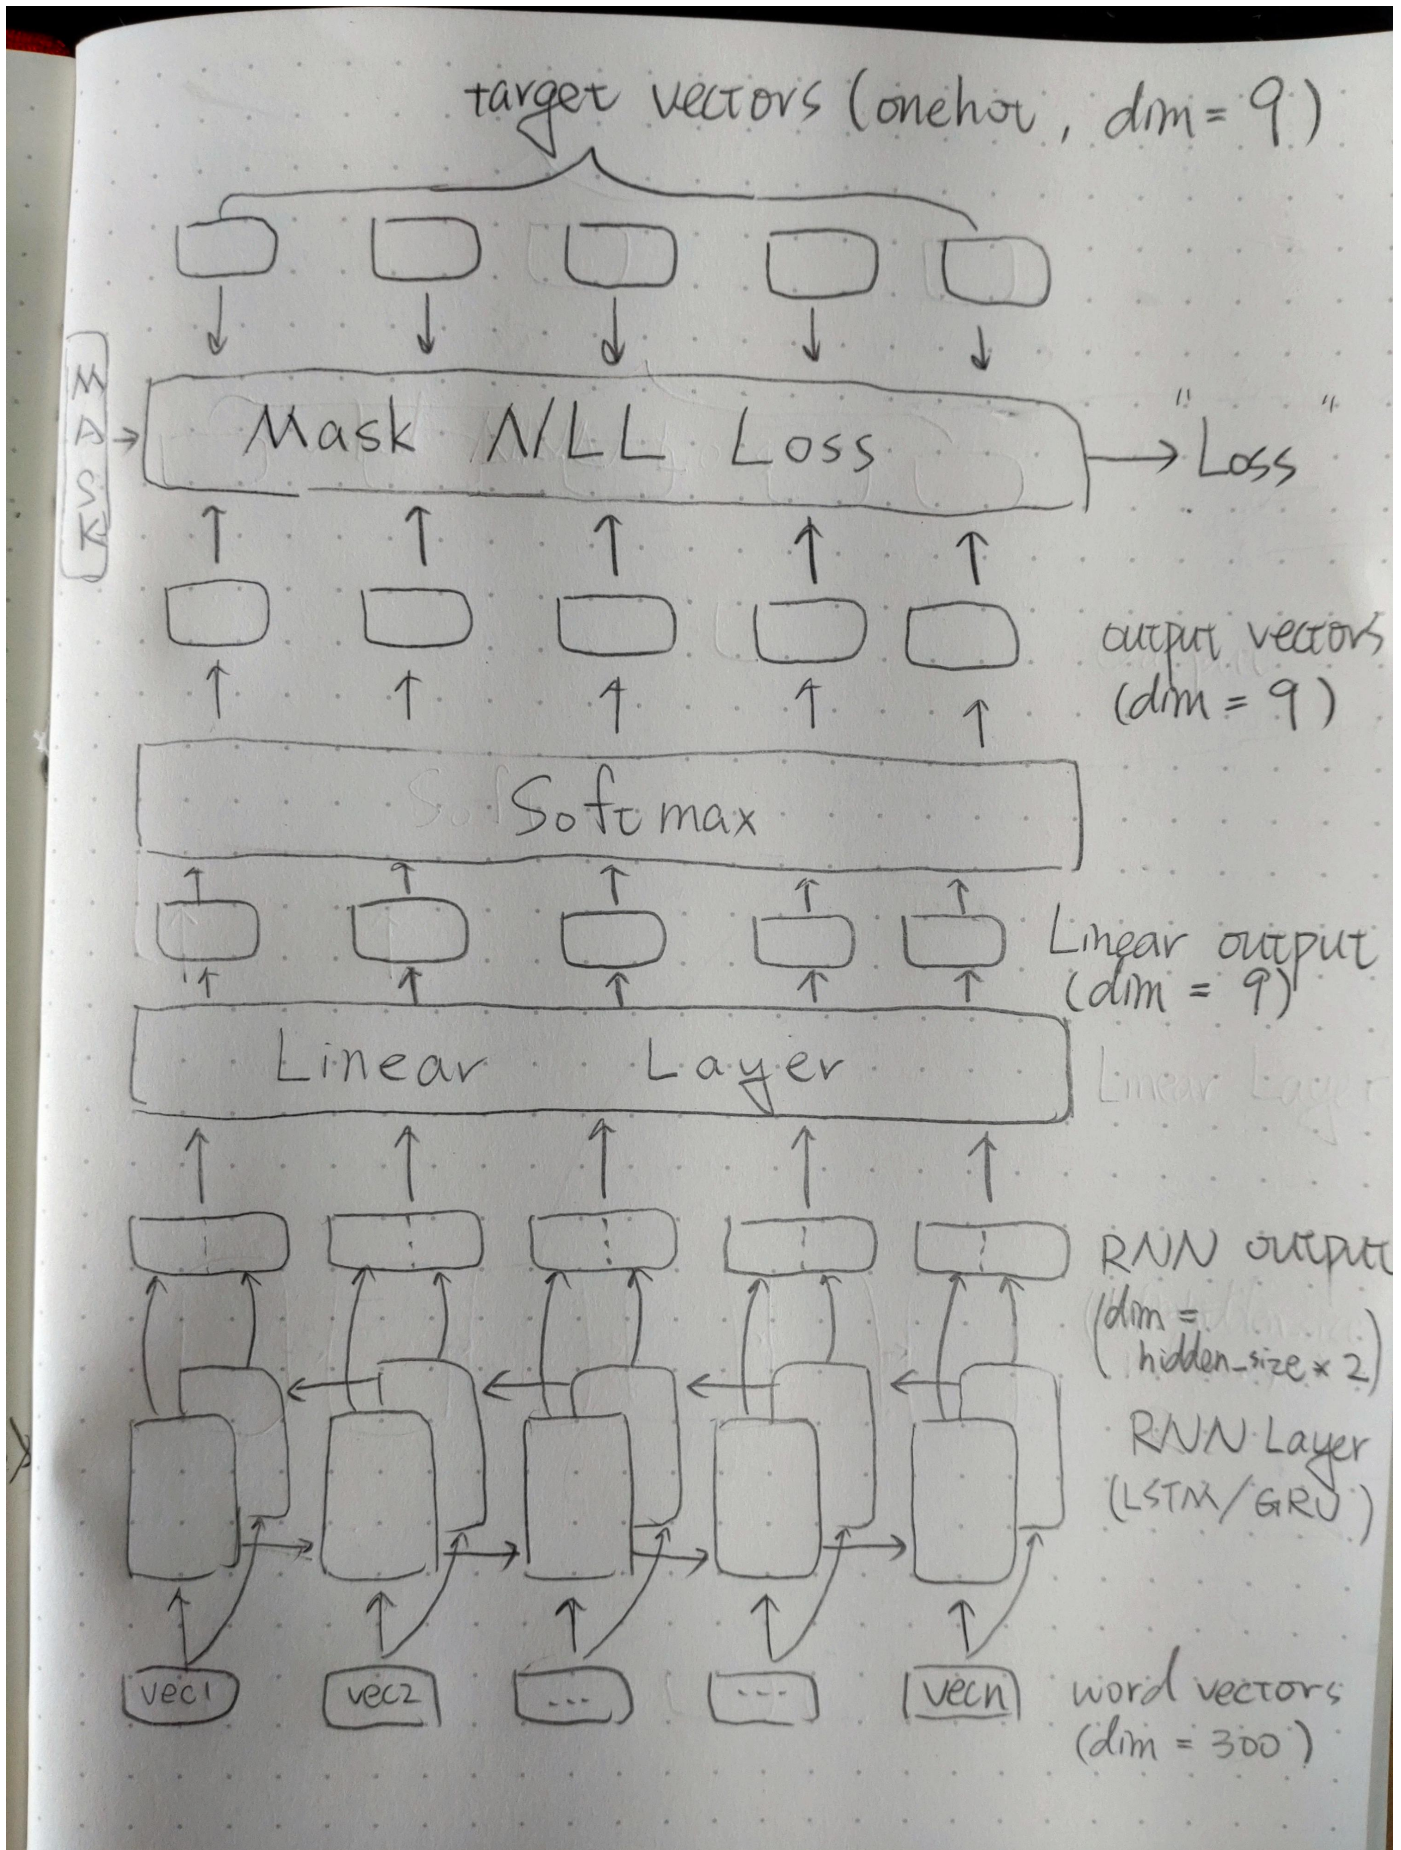 target vectors (onehot, dim = 9)
MASK
Mask NLL Loss
"Loss"
output vectors
(dim = 9)
Softmax
Linear output
(dim = 9)
Linear Layer
Linear Layer
RNN output
(dim =
hidden_size × 2)
RNN Layer
(LSTM/GRU)
vec1
vec2
...
---
vecn
word vectors
(dim = 300)